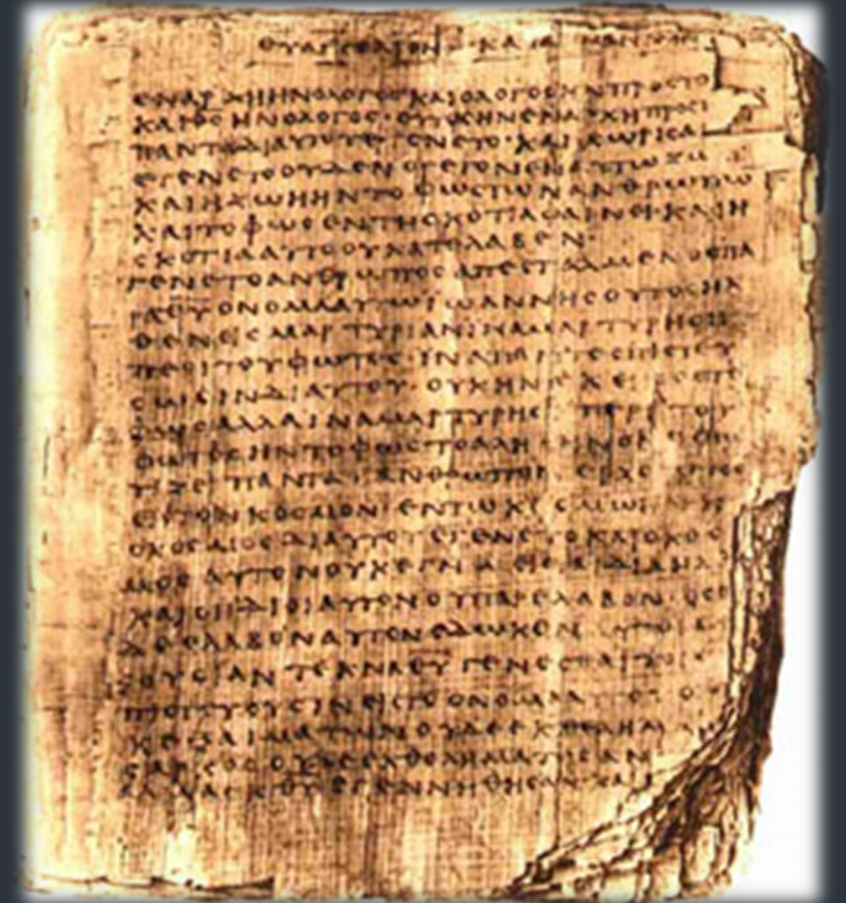 ΕΥΑΓΓΕΛΙΟΝ ΚΑΤΑ
ΕΝΑΡΧΗΗΝΟΛΟΓΟϹΚΑΙΟΛΟΓΟϹΗΝΠΡΟϹΤΟ
ΚΑΙΘϹΗΝΟΛΟΓΟϹ·ΟΥΤΟϹΗΝΕΝΑΡΧΗΠΡΟϹ
ΠΑΝΤΑΔΙΑΥΤΟΥΕΓΕΝΕΤΟ·ΚΑΙΧΩΡΙϹΑΥ
ΕΓΕΝΕΤΟΟΥΔΕΝΟΓΕΓΟΝΕΝΕΝΑΥΤΩΖΩΗ
ΚΑΙΗΖΩΗΗΝΤΟΦΩϹΤΩΝΑΝΘΡΩΠΩ
ΚΑΙΤΟΦΩϹΕΝΤΗϹΚΟΤΙΑΦΑΙΝΕΙ·ΚΑΙΗ
ϹΚΟΤΙΑΑΥΤΟΟΥΚΑΤΕΛΑΒΕΝ·
ΕΓΕΝΕΤΟΑΝΘΡΩΠΟϹΑΠΕϹΤΑΛΜΕΝΟϹΠΑ
ΡΑΘΥΟΝΟΜΑΑΥΤΩΙΩΑΝΝΗϹΟΥΤΟϹΗΛ
ΘΕΝΕΙϹΜΑΡΤΥΡΙΑΝΙΝΑΜΑΡΤΥΡΗϹΗ
ΠΕΡΙΤΟΥΦΩΤΟϹ·ΙΝΑΠΑΝΤΕϹΠΙϹΤΕΥ
ϹΩϹΙΝΔΙΑΥΤΟΥ·ΟΥΚΗΝΕΚΕΙΝΟϹΤΟ
ΦΩϹΑΛΛΑΙΝΑΜΑΡΤΥΡΗϹΗΠΕΡΙΤΟΥ
ΦΩΤΟϹΗΝΤΟΦΩϹΤΟΑΛΗΘΙΝΟΝ
ΤΙΖΕΙΠΑΝΤΑΑΝΘΡΩΠΟΝΕΡΧΟΜΕΝΟ
ΕΙϹΤΟΝΚΟϹΜΟΝ·ΕΝΤΩΚΟϹΜΩΗΝ
ΟΚΟϹΜΟϹΔΙΑΥΤΟΥΕΓΕΝΕΤΟΚΑΙΟΚΟϹ
ΜΟϹΑΥΤΟΝΟΥΚΕΓΝΩΕΙϹΤΑΙΔΙΑΗΛΘΕ
ΚΑΙΟΙΙΔΙΟΙΑΥΤΟΝΟΥΠΑΡΕΛΑΒΟΝ·ΟϹΟΙ
ΔΕΕΛΑΒΟΝΑΥΤΟΝΕΔΩΚΕΝΑΥΤΟΙϹΕ
ΞΟΥϹΙΑΝΤΕΚΝΑΘΥΓΕΝΕϹΘΑΙΤΟΙϹ
ΠΙϹΤΕΥΟΥϹΙΝΕΙϹΤΟΟΝΟΜΑΑΥΤΟΥΟΙ
ΕΞΑΙΜΑΤΩΝΟΥΔΕΕΚΘΕΛΗΜΑ
ϹΑΡΚΟϹΟΥΔΕΕΚΘΕΛΗΜΑΤΟϹΑΝ
ΑΛΛΑΕΚΘΥΕΓΕΝΝΗΘΗϹΑΝ·ΚΑΙ